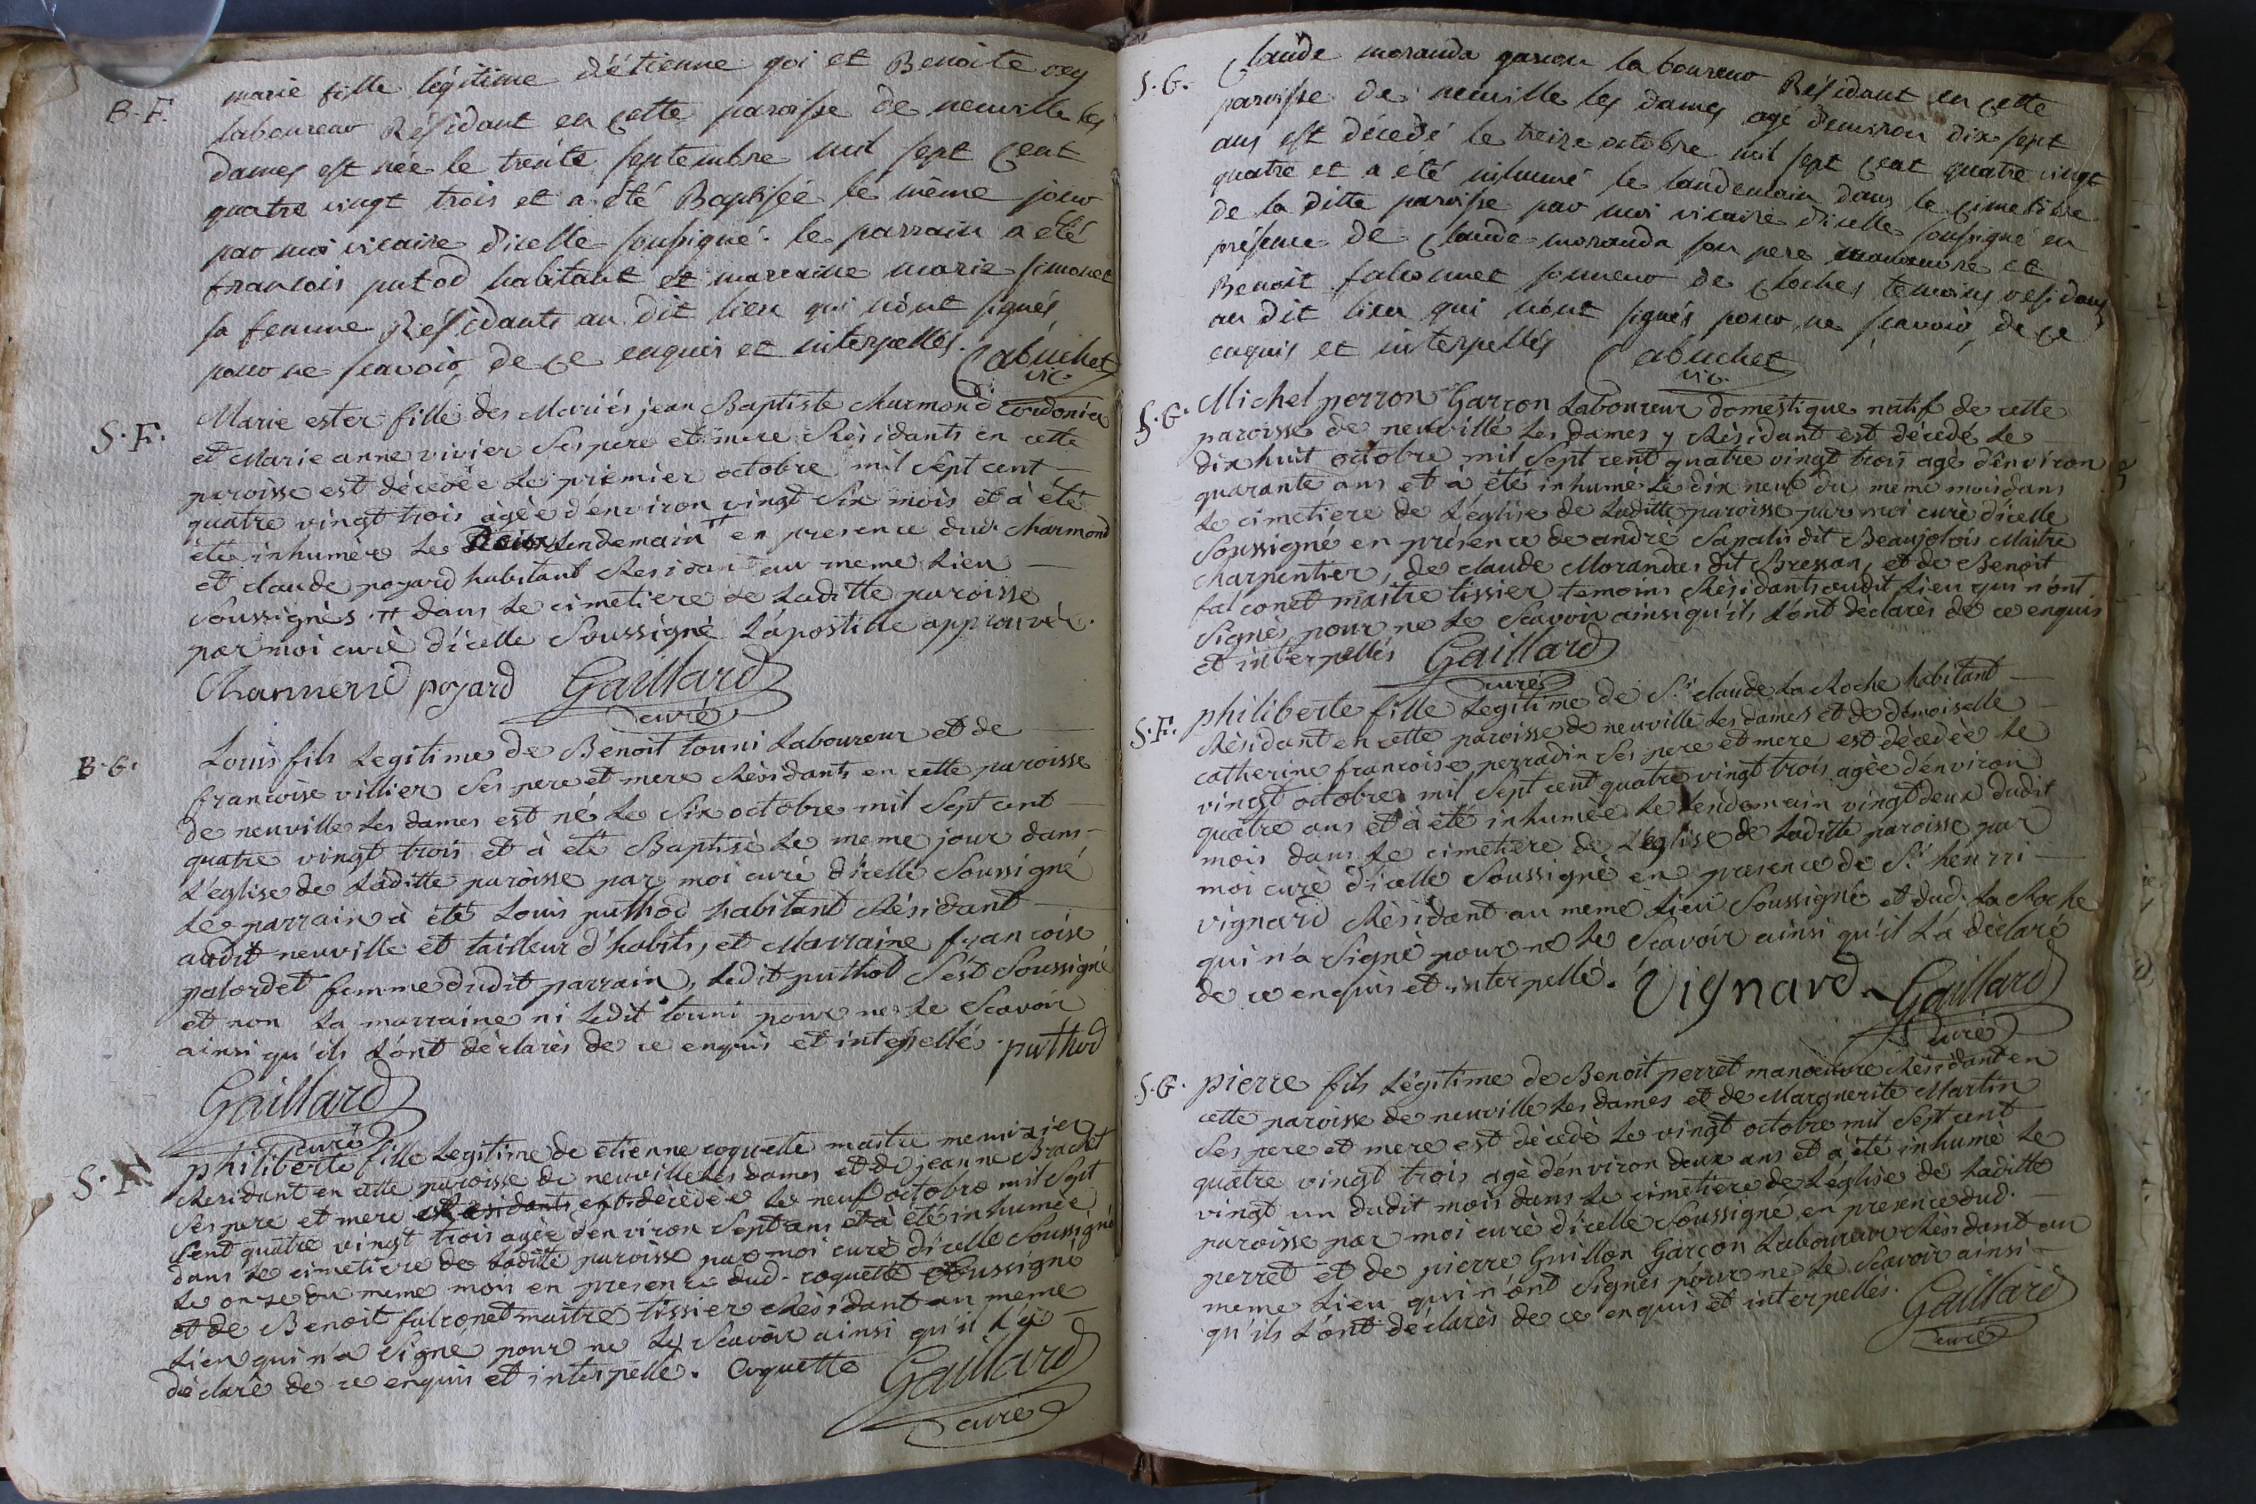 B. F.
marie fille légitime d'étienne goi et Benoite rey
laboureur Résidant en cette paroisse de neuville les
dames est née le trente septembre mil sept cent
quatre vingt trois et a été Baptisée le même jour
par moi vicaire d'icelle soussigné. le parrain a été
francois putod habitant et marraine marie simonet
sa femme Résidants au dit lieu qui n'ont signés
pour ne scavoir, de ce enquis et interpellés. Cabuchet
vic.
S. F.
Marie ester fille des Mariés jean Baptiste Charmond Cordonier
et Marie anne vivier Ses pere et mere Résidants en cette
paroisse est décedée Le premier octobre mil Sept cent
quatre vingt trois agée d'environ vingt Six mois et à été
été inhumée Le Lendemain # en presence dud. Charmond
et claude poyard habitant Residant au meme Lieu
Soussignés # dans Le cimetiere de Laditte paroisse
par moi curé d'icelle Soussigné L'apostille approuvée.
poyard Gaillard
curé
B. G.
Louis fils Legitime de Benoit touni Laboureur et de
francoise villier Ses pere et mere Résidants en cette paroisse
de neuville Les dames est né Le Six octobre mil Sept cent
quatre vingt trois et à été Baptisé Le meme jour dans
L'eglise de Laditte paroisse par moi curé d'icelle Soussigné
Le parrain à été Louis puthod habitant Résidant
audit neuville et tailleur d'habits, et Marraine francoise
palordet femme dudit parrain, Ledit puthod S'est Soussigné
et non La marraine ni Ledit touni pour ne Le Scavoir
ainsi qu'ils L'ont déclarés de ce enquis et interpellé. puthod
Gaillard
curé
S. F.
philiberte fille Legitime de etienne coquette maitre menuisier
Residant en cette paroisse de neuville Les dames et de jeanne Brachet
Ses pere et mere est décedée Le neuf octobre mil Sept
Cent quatre vingt trois agée d'environ Sept ans et à été inhumée
dans Le cimetiere de Laditte paroisse par moi curé d'icelle Soussigné
Le onze du meme mois en presence dud. coquette Soussigné
et de Benoit falconet maitre tissier Résidant au meme
Lieu qui n'a Signé pour ne Le Scavoir ainsi qu'il L'a
déclaré de ce enquis et interpellé. Coquette Gaillard
curé
S. G.
Claude moranda garcon laboureur Résidant en cette
paroisse de neuville les dames agé d'environ dix sept
ans est décedé le treize octobre mil sept cent quatre vingt
quatre et a été inhumé le landemain dans le cimetière
de la ditte paroisse par moi vicaire d'icelle soussigné en
présence de Claude moranda son pere manouvre et
Benoit falconnet sonneur de cloches temoins residans
au dit lieu qui n'ont signés pour ne scavoir, de ce
enquis et interpellés Cabuchet
vic.
S. G.
Michel perron Garcon Laboureur domestique natif de cette
paroisse de neuville Les dames y Résidant est décedé Le
dix huit octobre mil Sept cent quatre vingt trois agé d'environ
quarante ans et à été inhumé Le dix neuf du meme mois dans
Le cimetiere de L'église de Laditte paroisse par moi curé d'icelle
Soussigné en présence de andré Sapalis dit Beaujolois Maitre
charpentier, de claude Morandas dit Bressan, et de Benoit
falconet maitre tissier temoins Résidants audit Lieu qui n'ont
Signés pour ne Le Scavoir ainsi qu'ils L'ont déclarés de ce enquis
et interpellés Gaillard
curé
S. F.
philiberte fille Legitime de Sr. claude La Roche habitant
Résidant en cette paroisse de neuville Les dames et de demoiselle
catherine francoise perradin Ses pere et mere est décedée Le
vingt octobre mil Sept cent quatre vingt trois agée d'environ
quatre ans et à été inhumée Le Lendemain vingt deux dudit
mois dans Le cimetiere de L'eglise de Laditte paroisse par
moi curé d'icelle Soussigné en presence de Sr. henrri
vignard Résidant au meme Lieu Soussigné et dud. La Roche
qui n'a Signé pour ne Le Scavoir ainsi qu'il L'a déclaré
de ce enquis et interpellé. Vignard Gaillard
curé
S. G.
pierre fils Légitime de Benoit perret manoeuvre Résidant en
cette paroisse de neuville Les dames et de Marguerite Martin
Ses pere et mere est décedé Le vingt octobre mil Sept cent
quatre vingt trois agé d'environ deux ans et à été inhumé Le
vingt un dudit mois dans Le cimetiere de L'église de Laditte
paroisse par moi curé d'icelle Soussigné en presence dud.
perret et de pierre Guillon Garcon Laboureur Résidant au
meme Lieu qui n'ont Signés pour ne Le Scavoir ainsi
qu'ils L'ont déclarés de ce enquis et interpellés. Gaillard
curé